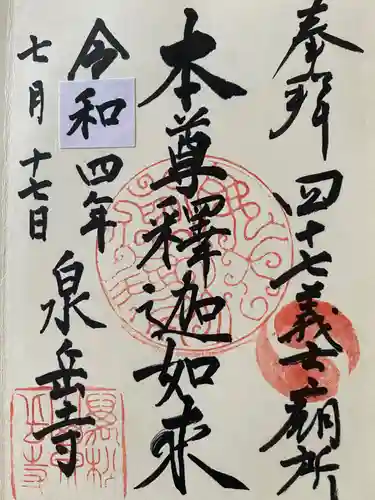 奉拝 四十七義士廟所
本尊釋迦如来
令和四年
七月十七日
泉岳寺